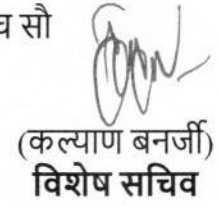 च सौ
(कल्याण बनर्जी)
विशेष सचिव